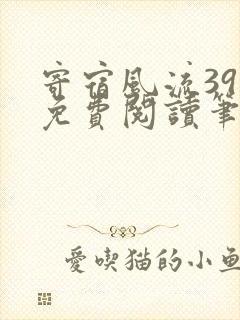 寄宿風流39
免費閱讀筆
愛喫猫的小魚